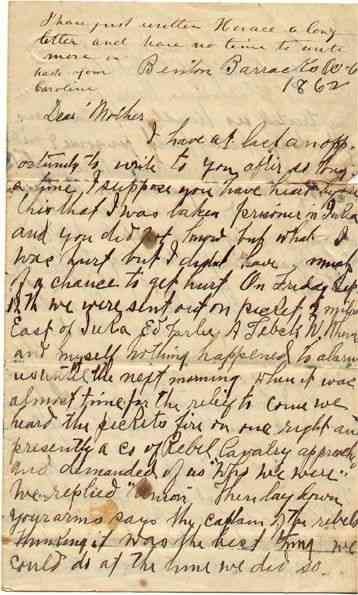 I have just written Horace a long
letter and have no time to write
more
Caroline
Benton Barracks
1862
Dear Mother
I have at last an opp-
ortunity to write to you after so long
a time, I suppose you have heard
this that I was taken prisoner in Iuka
and you did not know but what I
was hurt but I didnt have much
of a chance to get hurt On Friday Sep
12th we were sent out on picket
East of Iuka Ed Farlee A Tebets W
and myself nothing happened to alarm
us until the next morning when it was
almost time for the relief to come we
heard the pickets fire on our right an
presently a co of Rebel Cavalry approach
and demanded of us "Who we were"
We replied "Union" Then lay down
your arms says the captain of the rebels
thinking it was the best thing we
could do at the time we did so.